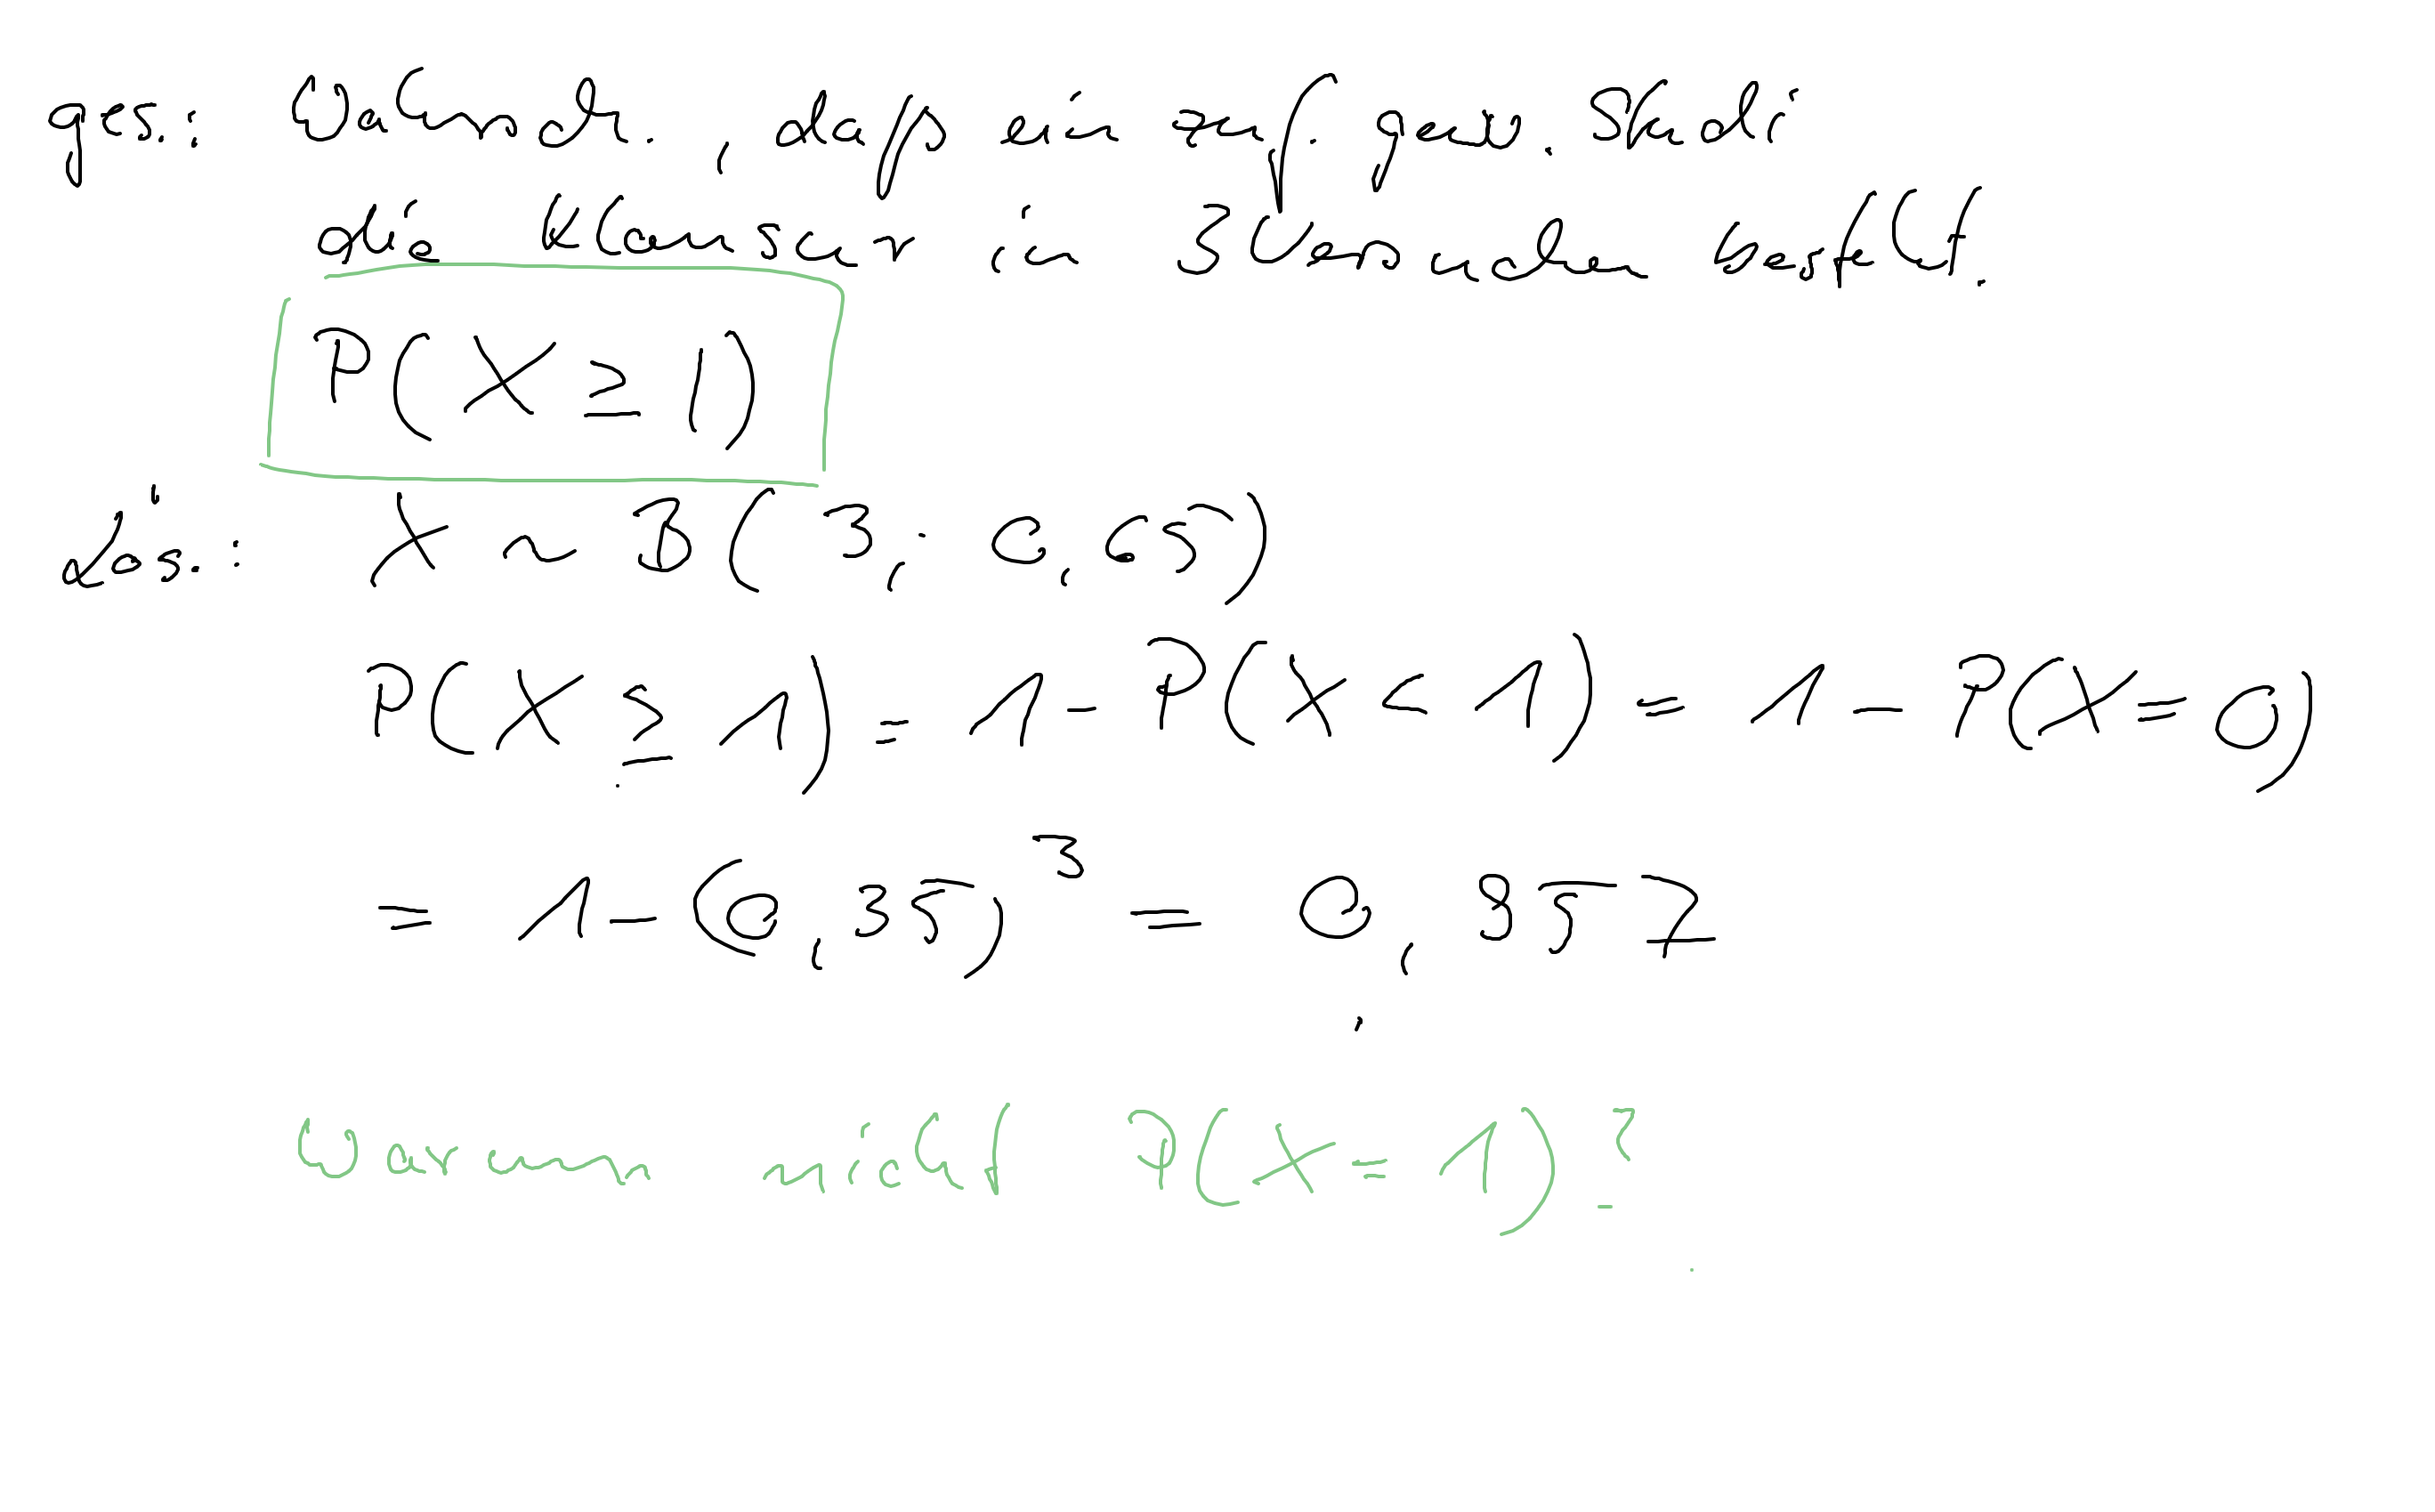 ges.: Wahrsch., daß ein zuf. gew. Studi
die Klausur in 3 Versuchen schafft.
P(X ≥ 1)
Lös.: X ~ B(3; 0,65)
P(X ≥ 1) = 1 - P(X < 1) = 1 - P(X = 0)
= 1 - (0,35)³ = 0,957
Warum nicht P(X = 1)?